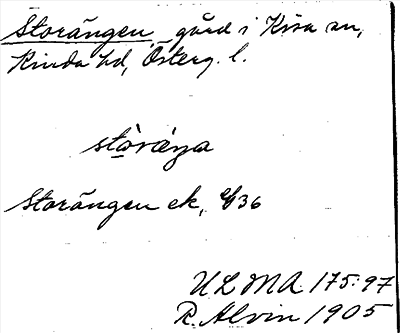 Storängen, gård i Kisa sn,
Kinda hd, Österg. l.
Storängen ek, 
ULMA 175:97
R. Alvin 1905